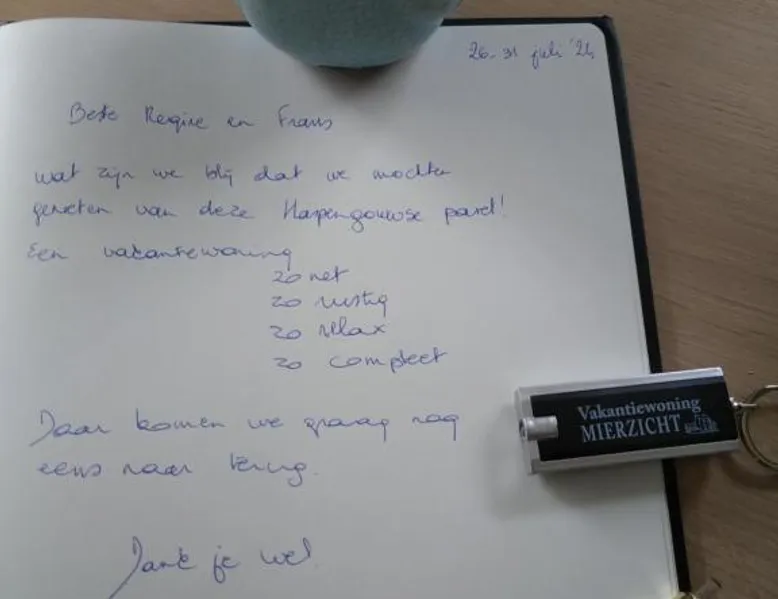 26-31 juli '24
Beste Regine en Frans
wat zijn we blij dat we mochten
genieten van deze Haspengouwse parel!
Een vakantiewoning
zo net
zo rustig
zo relax
zo compleet
Daar komen we graag nog
eens naar terug.
Dank je wel.
Vakantiewoning
MIERZICHT